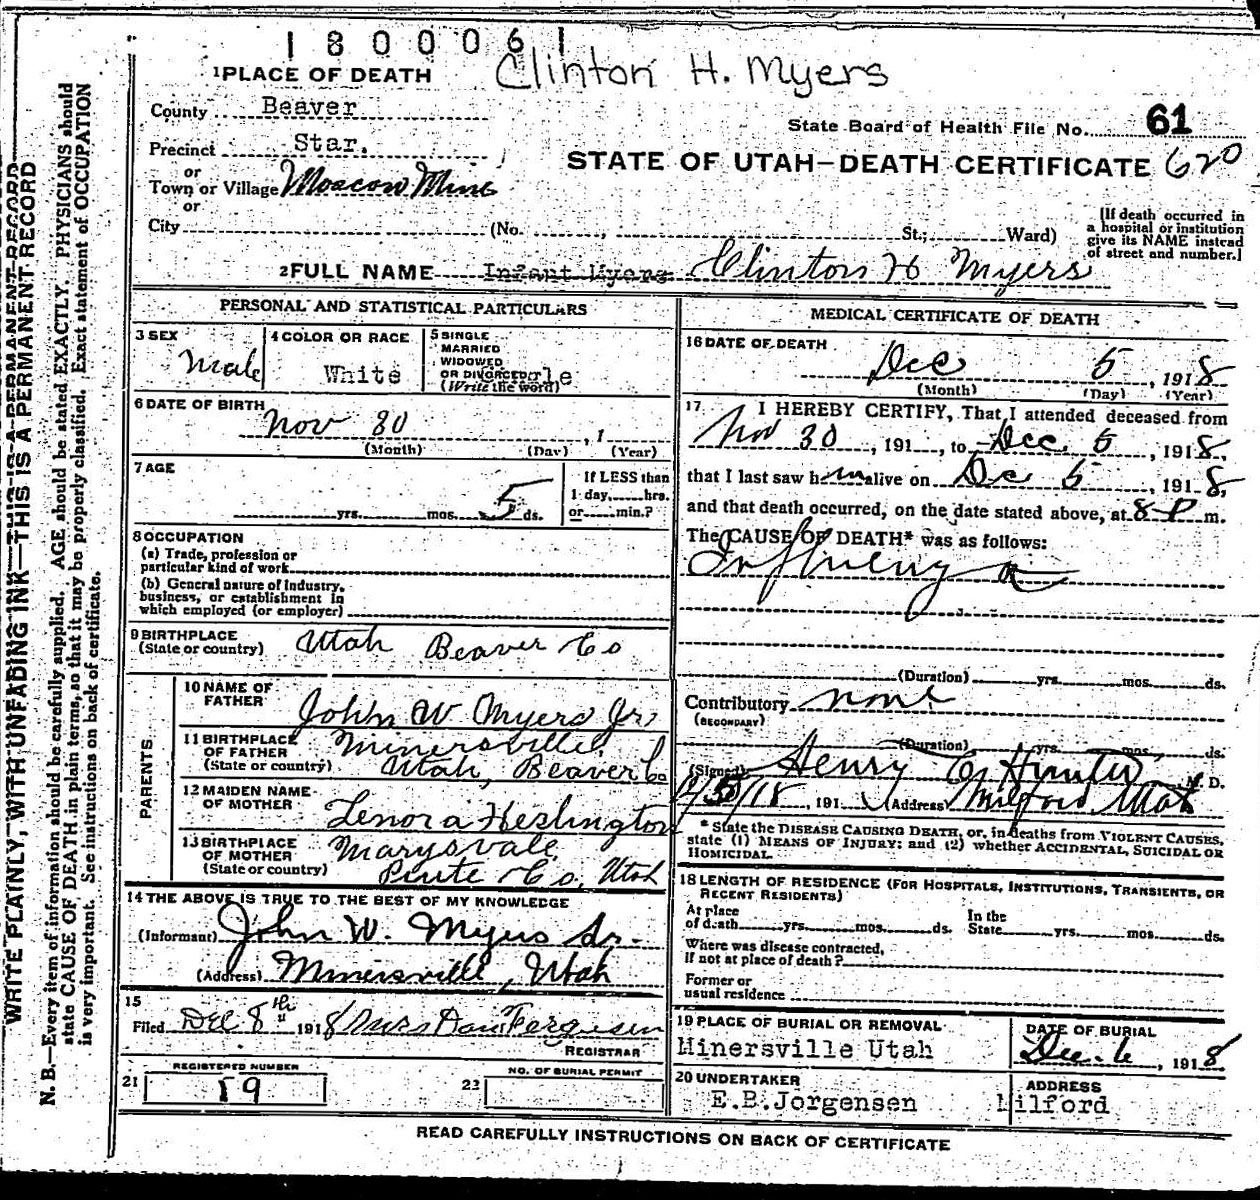 1800061
Clinton H. Myers
1 PLACE OF DEATH
County Beaver
State Board of Health File No. 61
Precinct Star.
STATE OF UTAH—DEATH CERTIFICATE 620
or
Town or Village Moscow Mine
or
City (No. , St.; Ward)
[If death occurred in a hospital or institution give its NAME instead of street and number.]
2 FULL NAME Infant Myers Clinton H Myers
PERSONAL AND STATISTICAL PARTICULARS
3 SEX
Male
4 COLOR OR RACE
White
5 SINGLE
MARRIED
WIDOWED
OR DIVORCED
(Write the word)
6 DATE OF BIRTH
Nov 30 , 1
(Month) (Day) (Year)
7 AGE
yrs. mos. 5 ds.
If LESS than
1 day, hrs.
or min.?
8 OCCUPATION
(a) Trade, profession or
particular kind of work
(b) General nature of industry,
business, or establishment in
which employed (or employer)
9 BIRTHPLACE
(State or country) Utah Beaver Co
PARENTS
10 NAME OF
FATHER John W Myers Jr
11 BIRTHPLACE
OF FATHER
(State or country)
Minersville
Utah, Beaver Co
12 MAIDEN NAME
OF MOTHER Lenora Heslington
13 BIRTHPLACE
OF MOTHER
(State or country)
Marysvale
Piute Co, Utah
14 THE ABOVE IS TRUE TO THE BEST OF MY KNOWLEDGE
(Informant) John W. Myers Sr.
(Address) Minersville, Utah
15
Filed Dec 8th 1918 Mrs Dan Ferguson
REGISTRAR
21 REGISTERED NUMBER
19
22 NO. OF BURIAL PERMIT
MEDICAL CERTIFICATE OF DEATH
16 DATE OF DEATH
Dec 5 , 1918
(Month) (Day) (Year)
17 I HEREBY CERTIFY, That I attended deceased from
Nov 30 , 191 , to Dec. 5 , 1918,
that I last saw him alive on Dec 5 , 1918,
and that death occurred, on the date stated above, at 8 P m.
The CAUSE OF DEATH* was as follows:
Influenza
(Duration) yrs. mos. ds.
Contributory none
(SECONDARY)
(Duration) yrs. mos. ds.
(Signed) Henry G Hunter, M. D.
12/5/18, 191 (Address) Milford Utah
* State the DISEASE CAUSING DEATH, or, in deaths from VIOLENT CAUSES,
state (1) MEANS OF INJURY; and (2) whether ACCIDENTAL, SUICIDAL OR
HOMICIDAL.
18 LENGTH OF RESIDENCE (FOR HOSPITALS, INSTITUTIONS, TRANSIENTS, OR
RECENT RESIDENTS)
At place
of death yrs. mos. ds.
In the
State yrs. mos. ds.
Where was disease contracted,
if not at place of death?
Former or
usual residence
19 PLACE OF BURIAL OR REMOVAL
Minersville Utah
DATE OF BURIAL
Dec. 6 , 1918
20 UNDERTAKER
E.B.Jorgensen
ADDRESS
Milford
READ CAREFULLY INSTRUCTIONS ON BACK OF CERTIFICATE
WRITE PLAINLY, WITH UNFADING INK—THIS IS A PERMANENT RECORD
N. B.—Every item of information should be carefully supplied. AGE should be stated EXACTLY. PHYSICIANS should
state CAUSE OF DEATH in plain terms, so that it may be properly classified. Exact statement of OCCUPATION
is very important. See instructions on back of certificate.